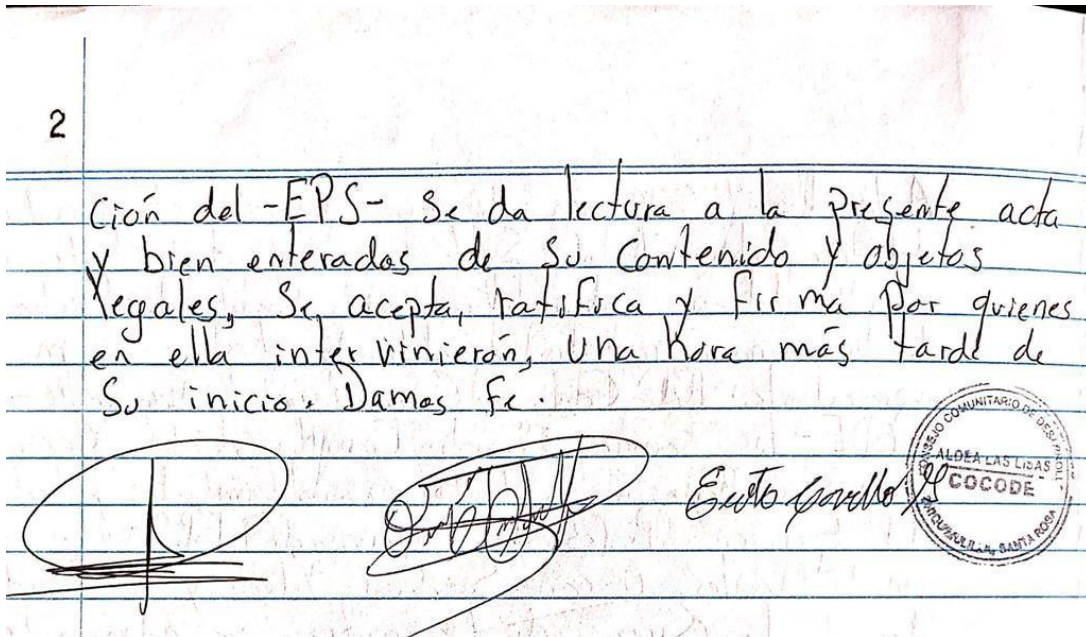 2
Ción del -EPS- Se da lectura a la presente acta
y bien enterados de su Contenido y objetos
legales, Se, acepta, ratifica y firma por quienes
en ella intervinierón, una hora más tarde de
Su inicio. Damos fe.
CONSEJO COMUNITARIO DE DESARROLLO
ALDEA LAS LISAS
COCODE
SANTA ROSA